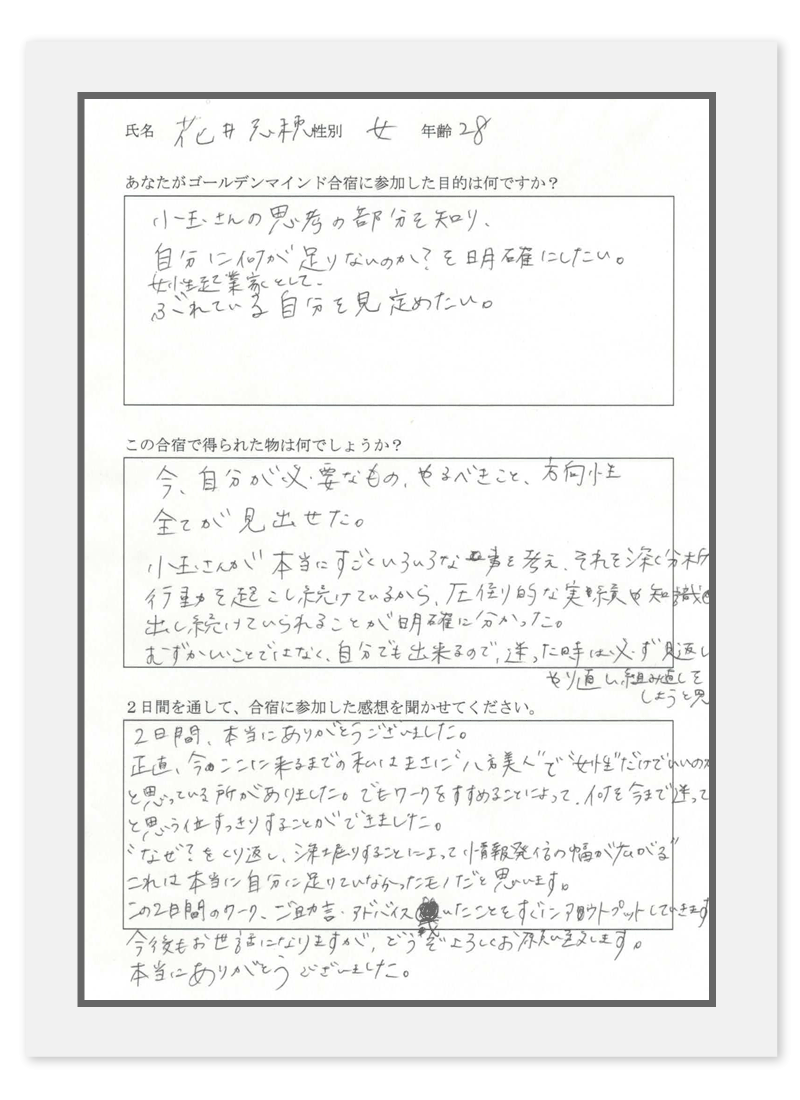 氏名 花井 志穂 性別 女 年齢 28
あなたがゴールデンマインド合宿に参加した目的は何ですか？
小玉さんの思考の部分を知り、
自分に何が足りないのか？を明確にしたい。
女性起業家として、
ぶれている自分を見定めたい。
この合宿で得られた物は何でしょうか？
今、自分が必要なもの、やるべきこと、方向性
全てが見出せた。
小玉さんが本当にすごくいろいろな事を考え、それを深く分析
行動を起こし続けているから、圧倒的な実績や知識
出し続けていられることが明確に分かった。
むずかしいことではなく、自分でも出来るので、迷った時は必ず見返し
やり直し、組み直しを
しようと思
２日間を通して、合宿に参加した感想を聞かせてください。
２日間、本当にありがとうございました。
正直、今回ここに来るまでの私はまさに"八方美人"で"女性"だけでいいのか
と思っている所がありました。でもワークをすすめることによって、何を今まで迷って
と思う位すっきりすることができました。
"なぜ？をくり返し、深堀りすることによって情報発信の幅が広がる"
これは本当に自分に足りていなかったモノだと思います。
この2日間のワーク、ご助言・アドバイス 戴いたことをすぐにアウトプットしていきます
今後もお世話になりますが、どうぞよろしくお願い致します。
本当にありがとうございました。